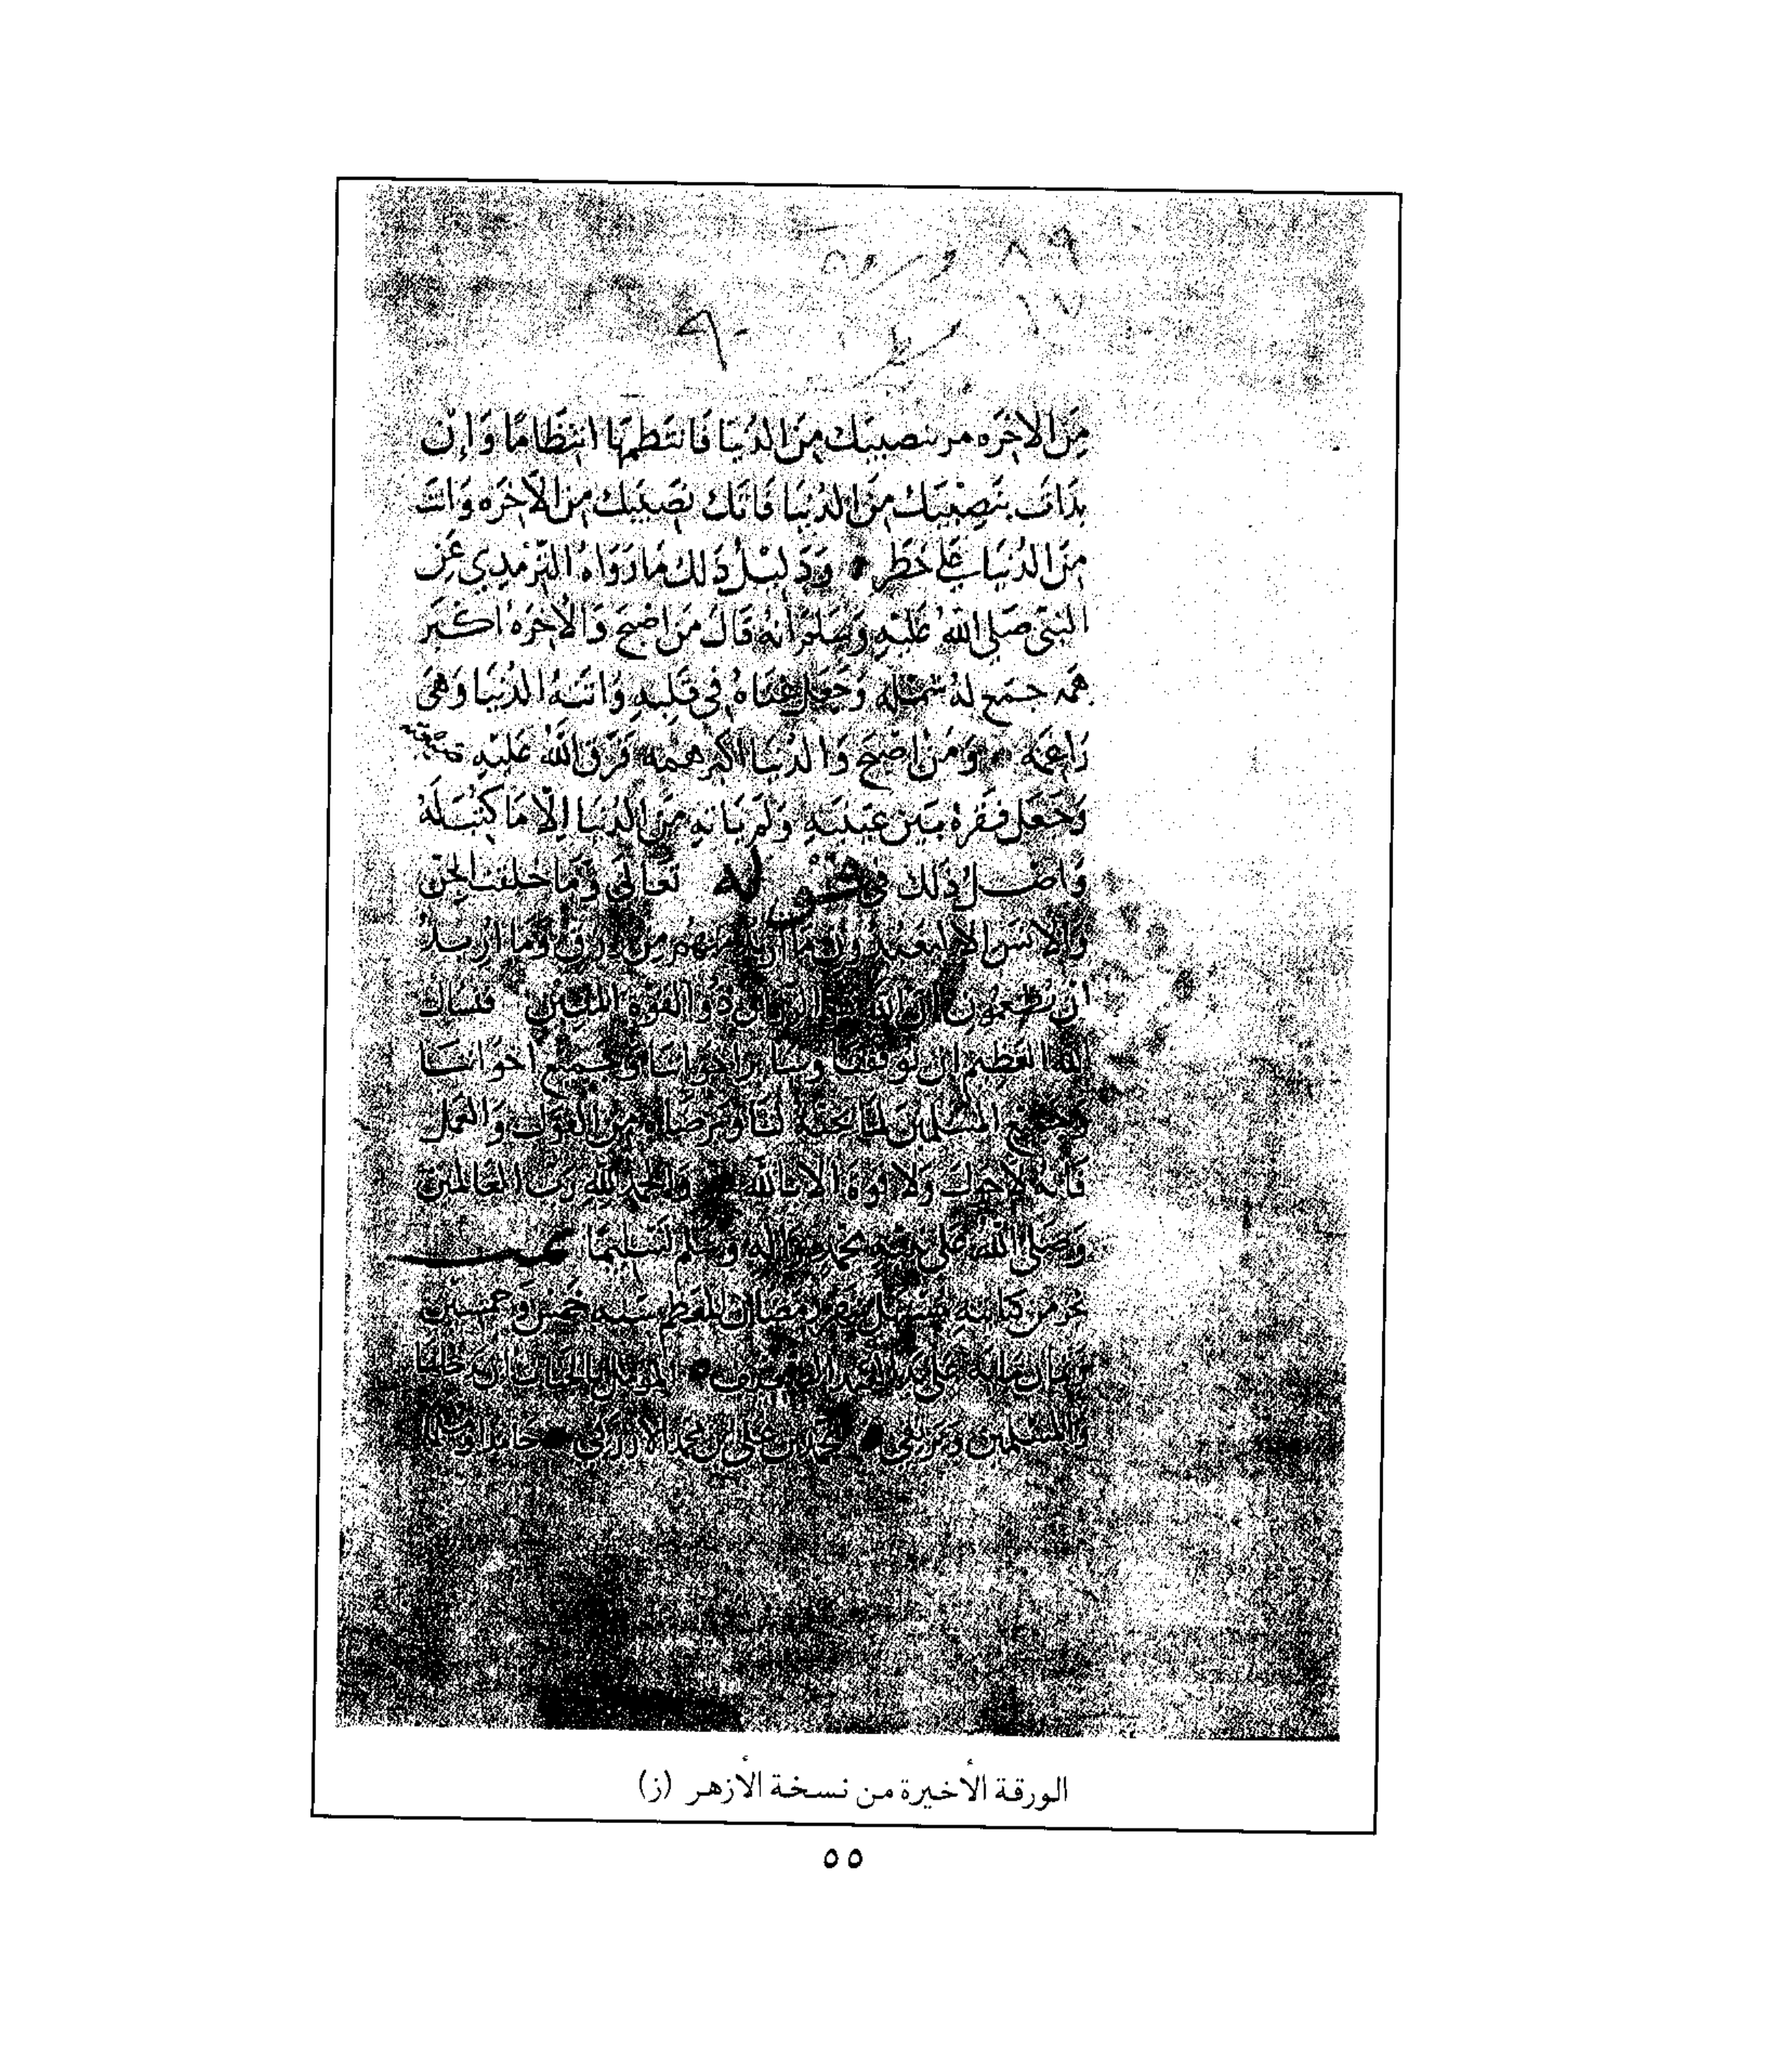 ٨٩ ورقة
١٧
٩٠
مِنَ الاخِرَه مر بنصيبك مِنَ الدُنيَا فَانتَظمهَا انتِظَامًا وَإن
بَدَات بنَصِيْبك مِنَ الدُنيَا فَاتَك نَصيبَك مِن الآخِرَه وَانتَ
مِنَ الدُنيَا عَلى خَطَر وَدَليْلُ ذَلك مَا رَوَاهُ التِّرمُدِي عَنِ
النَبِي صَلى الله عَليْهِ وَسَلم أنهُ قَالَ مَن اصْبَحَ وَالآخِرَةُ اكبَر
هَمه جمَع لهُ شمْله وَجَعَل غِنَاهُ فِي قَلبِهِ وَاتتهُ الدُنيَا وَهيَ
رَاغِمَه وَمَن اصْبَحَ وَالدُنيَا اكبَر همِهِ فَرَق اللهُ عَليْهِ ضيْعَته
وَجَعَل فَقرهُ بَين عَيْنَيهِ وَلم يَاتهِ مِنَ الدُنيَا إلا مَا كُتبَ لهُ
وَاصْل ذَلك في قوله تعَالى وَمَا خَلقت الجِن
وَالانسَ الا ليَعبدُون مَا أريدُ مِنهُم مِن رزق وَمَا اريدُ
ان يُطعمُون ان الله هوَ الرزاق ذو القوة المتين فنسَال
الله العَظِيم ان يوفقنَا وسَاير اخوَاننَا وَجَميْع اخوَاننَا
وَجَميْع المسْلمِينَ لمَا يحبهُ لنَا وَيَرضَاه مِن القَوْل وَالعَمَل
فَانهُ لا حَول وَلا قوة الا بالله وَالحمد لله رَب العَالمِين
وَصَلى الله عَلى محمد وَاله وسَلم تسْليمًا
مِن كتابتهِ مُستهَل رمضَان المعَظم سَنه خمس وَخمسِين
مَايه عَلى يَد
وَالمسْلمِين محمد بن عَلي بن محمد الازرَقي حَامدًا
الورقة الأخيرة من نسخة الأزهر (ز)
٥٥